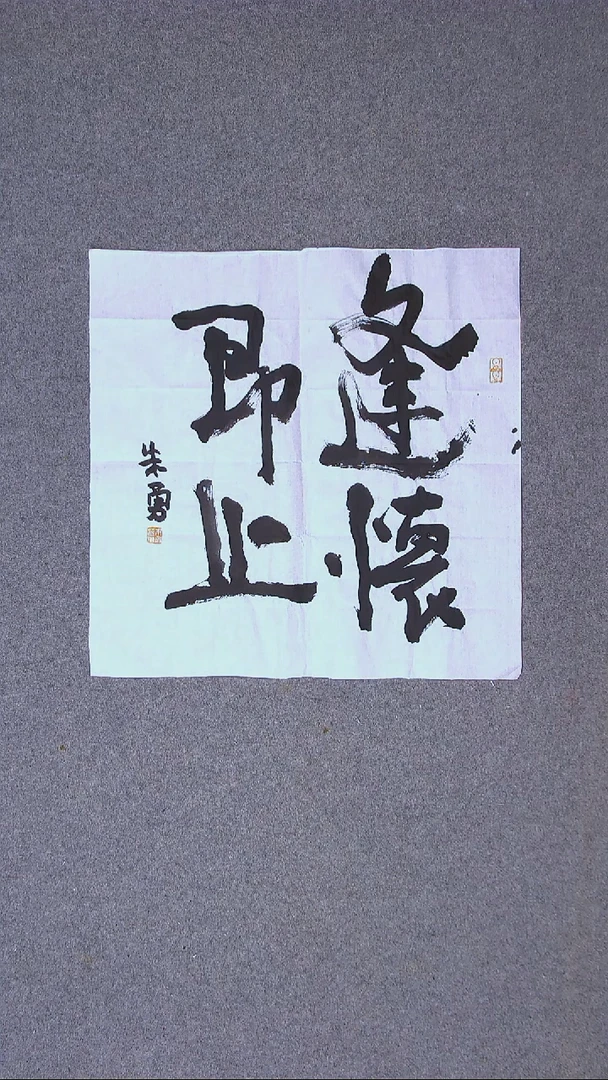 逢懷
即止
朱勇